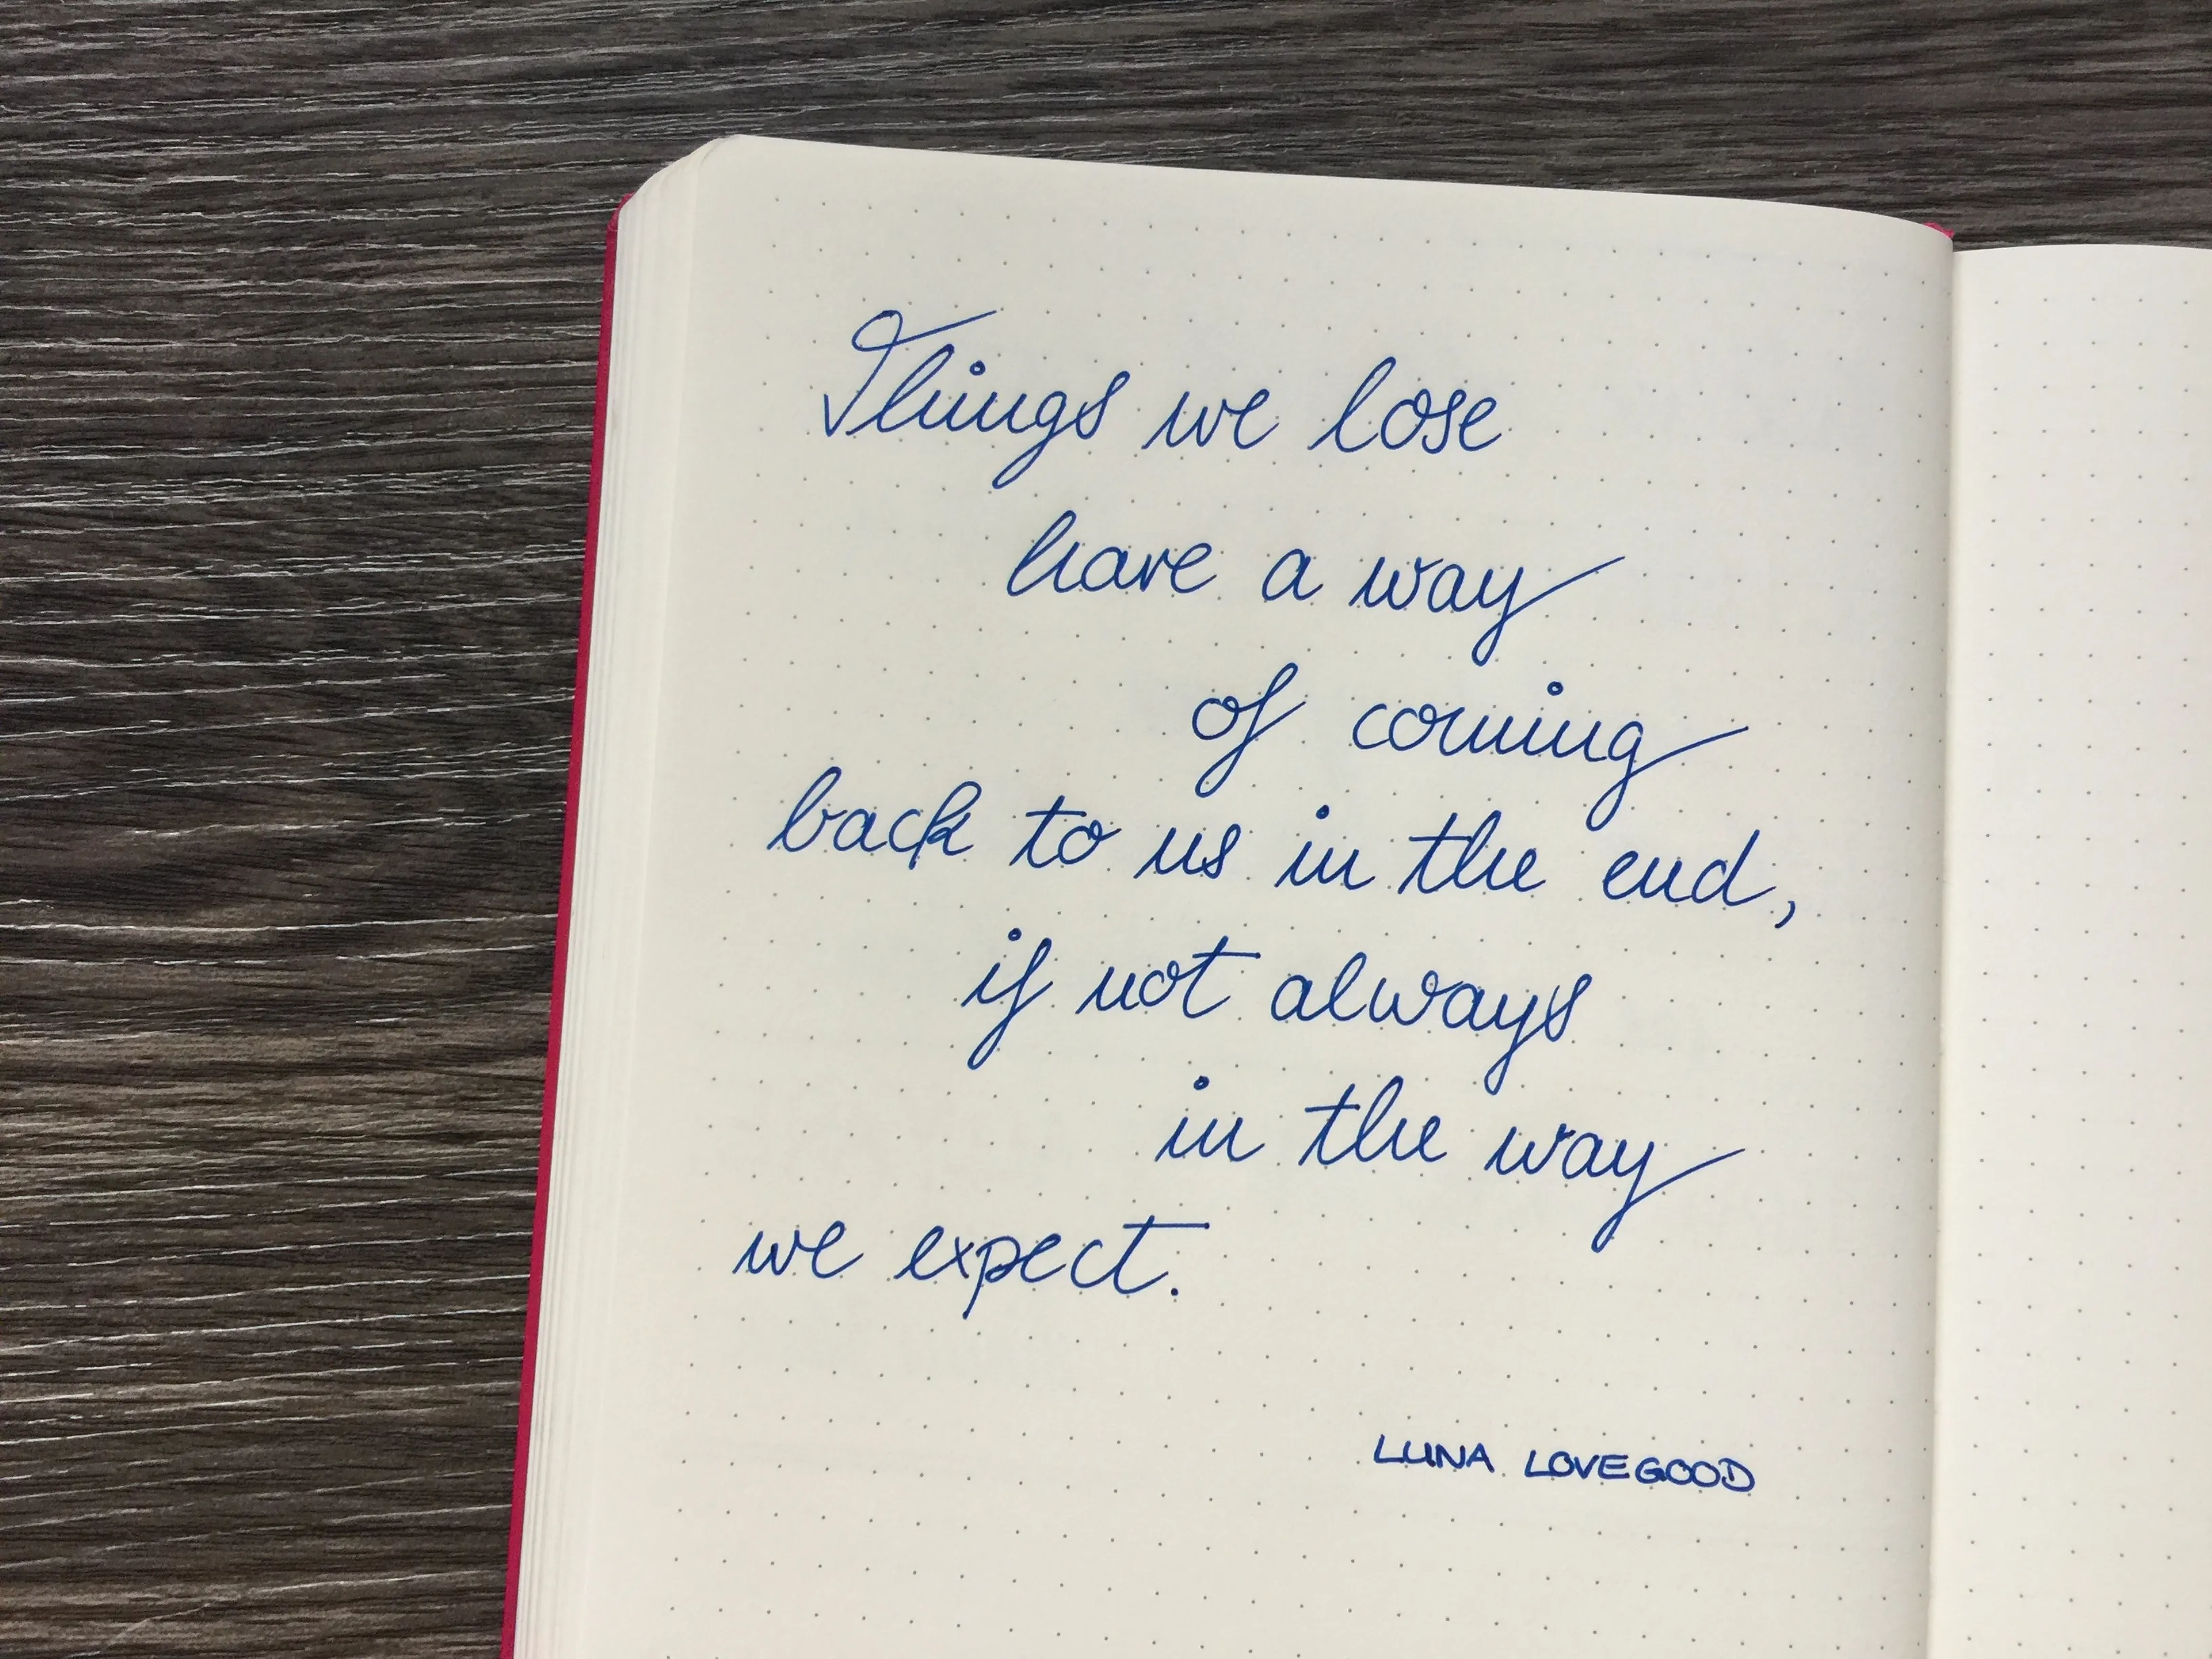 Things we lose
have a way
of coming
back to us in the end,
if not always
in the way
we expect.
LUNA LOVEGOOD